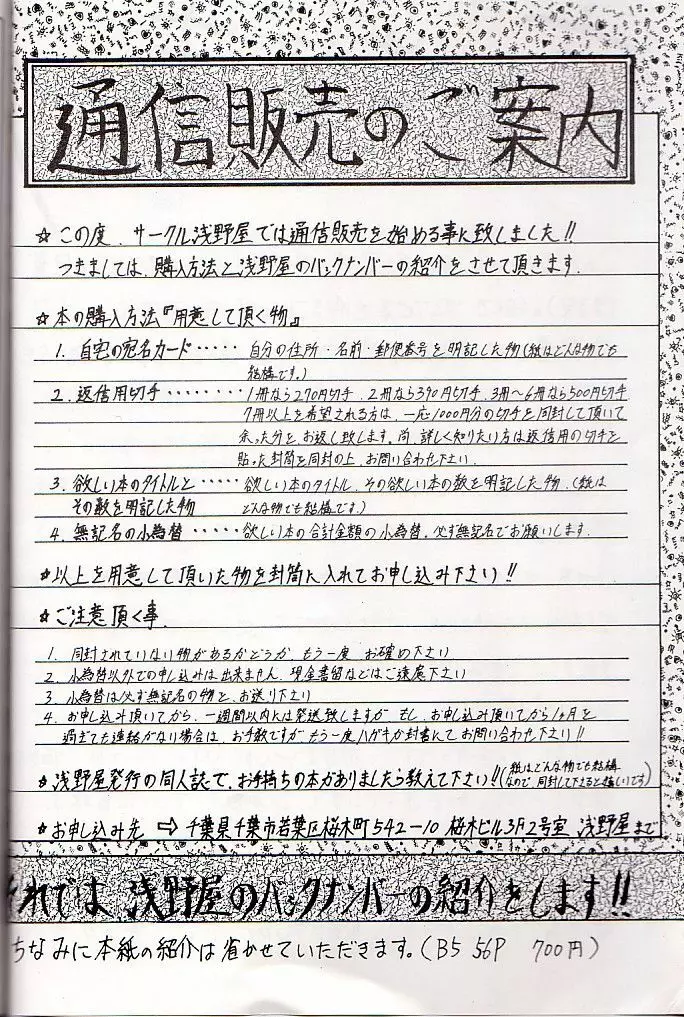 通信販売のご案内
☆この度、サークル浅野屋では通信販売を始める事に致しました!!
つきましては、購入方法と浅野屋のバックナンバーの紹介をさせて頂きます。
☆本の購入方法『用意して頂く物』
1. 自宅の宛名カード・・・・・ 自分の住所・名前・郵便番号を明記した物(紙はどんな物でも
結構です。)
2. 返信用切手・・・・・・・・ 1冊なら270円切手、2冊なら390円切手、3冊〜6冊なら500円切手
7冊以上を希望される方は、一応1000円分の切手を同封して頂いて
余った分をお返し致します。尚、詳しく知りたい方は返信用の切手を
貼った封筒を同封の上、お問い合わせ下さい。
3. 欲しい本のタイトルと・・・・ 欲しい本のタイトル、その欲しい本の数を明記した物。(紙は
その数を明記した物 どんな物でも結構です。)
4. 無記名の小為替・・・・・ 欲しい本の合計金額の小為替。必ず無記名でお願いします。
☆以上を用意して頂いた物を封筒に入れてお申し込み下さい!!
☆ご注意頂く事。
1. 同封されていない物があるかどうか、もう一度、お確め下さい
2. 小為替以外での申し込みは出来ません。現金書留などはご遠慮下さい
3. 小為替は必ず無記名の物を、お送り下さい
4. お申し込み頂いてから、一週間以内には発送致しますが、もし、お申し込み頂いてから1ヶ月を
過ぎても連絡がない場合は、お手数ですが、もう一度ハガキか封書にてお問い合わせ下さい!!
☆浅野屋発行の同人誌で、お手持ちの本がありましたら教えて下さい!!(紙はどんな物でも結構
なので、同封して下さると嬉しいです)
☆お申し込み先 ⇨ 千葉県千葉市若葉区桜木町542-10 桜木ビル3F2号室 浅野屋まで
それでは、浅野屋のバックナンバーの紹介をします!!
ちなみに本紙の紹介は省かせていただきます。(B5 56P 700円)